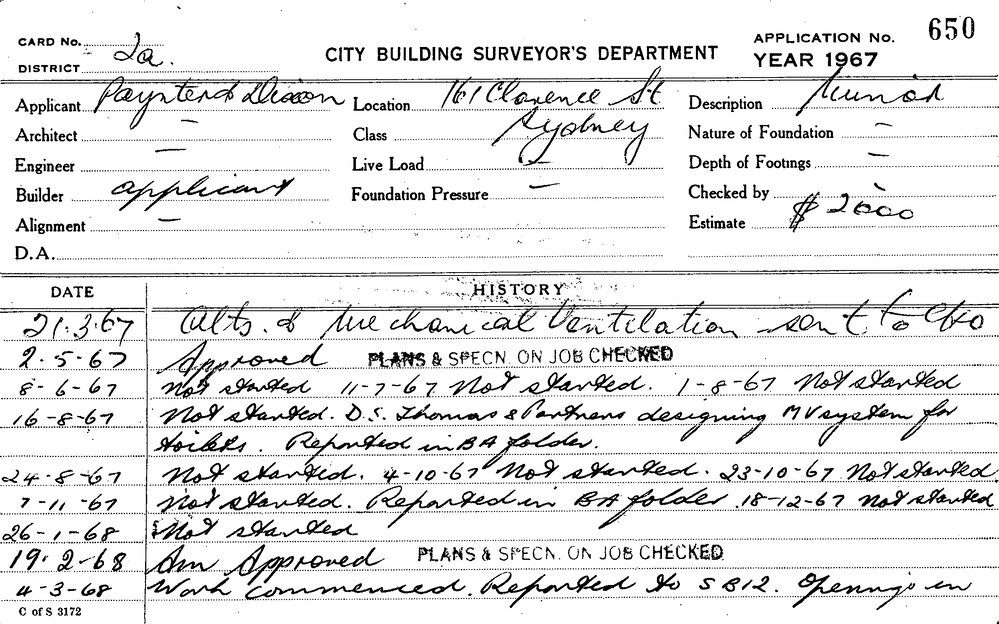 CARD No.
DISTRICT 2a.
CITY BUILDING SURVEYOR'S DEPARTMENT
APPLICATION No. 650
YEAR 1967
Applicant Paynter & Dixon Location 161 Clarence St Description Minor
Architect — Class Sydney Nature of Foundation —
Engineer — Live Load — Depth of Footings —
Builder applicant Foundation Pressure — Checked by
Alignment — Estimate $ 2000
D.A.
DATE HISTORY
21.3.67 Alts. & Mechanical Ventilation sent to
2-5-67 Approved PLANS & SPECN. ON JOB CHECKED
8-6-67 Not started 11-7-67 Not started. 1-8-67 Not started
16-8-67 Not started. D.S. Thomas & Partners designing MV system for
toilets. Reported in BA folder.
24-8-67 Not started. 4-10-67 Not started. 23-10-67 Not started.
7-11-67 Not started. Reported in BA folder. 18-12-67 Not started
26-1-68 Not started
19.2-68 Am Approved PLANS & SPECN. ON JOB CHECKED
4-3-68 Work commenced. Reported to SB12. Openings in
C of S 3172